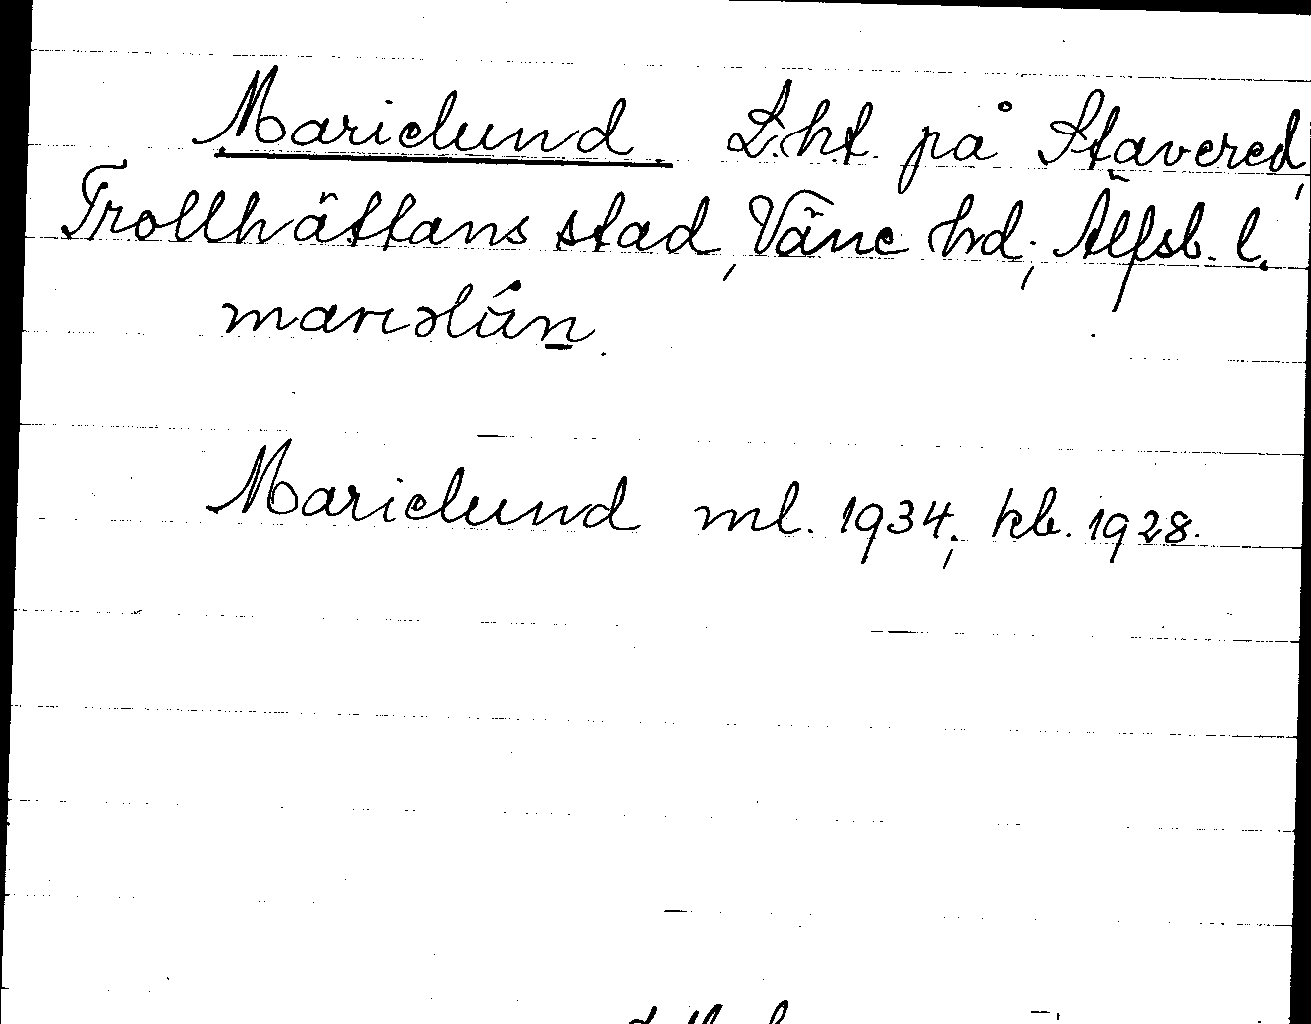 Marielund. L.ht. på Stavered,
Trollhättans stad, Väne hd; Älfsb. l.
marıəlún.
Marielund ml. 1934; kb. 1928.